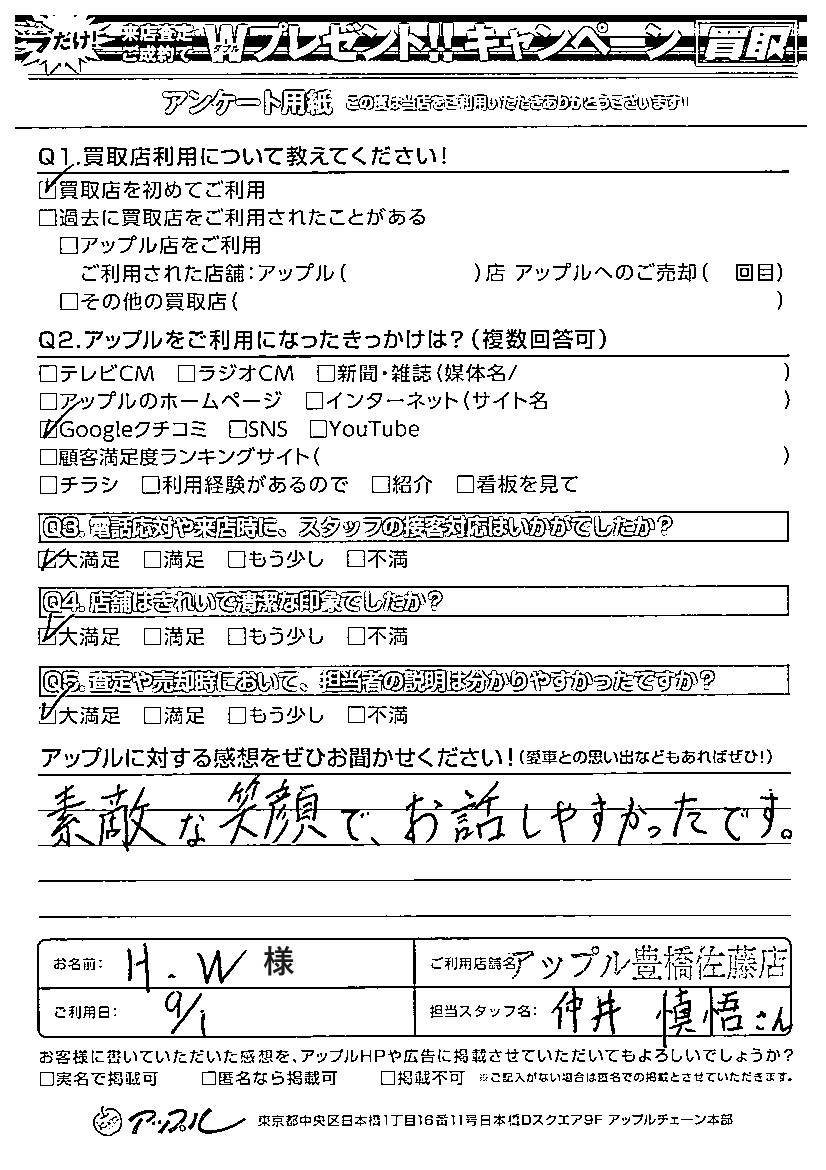 だけ! 来店査定 ご成約で Wプレゼント!! キャンペーン 買取
アンケート用紙 この度は当店をご利用いただきありがとうございます!!
Q1.買取店利用について教えてください!
☑買取店を初めてご利用
□過去に買取店をご利用されたことがある
□アップル店をご利用
ご利用された店舗:アップル( )店 アップルへのご売却( 回目)
□その他の買取店( )
Q2.アップルをご利用になったきっかけは?(複数回答可)
□テレビCM □ラジオCM □新聞・雑誌(媒体名/ )
□アップルのホームページ □インターネット(サイト名 )
☑Googleクチコミ □SNS □YouTube
□顧客満足度ランキングサイト( )
□チラシ □利用経験があるので □紹介 □看板を見て
Q3.電話応対や来店時に、スタッフの接客対応はいかがでしたか?
☑大満足 □満足 □もう少し □不満
Q4.店舗はきれいで清潔な印象でしたか?
☑大満足 □満足 □もう少し □不満
Q5.査定や売却時において、担当者の説明は分かりやすかったですか?
☑大満足 □満足 □もう少し □不満
アップルに対する感想をぜひお聞かせください!(愛車との思い出などもあればぜひ!)
素敵な笑顔で、お話しやすかったです。
お名前: H.W 様 ご利用店舗名 アップル豊橋佐藤店
ご利用日: 9/1 担当スタッフ名: 仲井 慎悟さん
お客様に書いていただいた感想を、アップルHPや広告に掲載させていただいてもよろしいでしょうか?
□実名で掲載可 □匿名なら掲載可 □掲載不可 ※ご記入がない場合は匿名での掲載とさせていただきます。
アップル 東京都中央区日本橋1丁目16番11号日本橋Dスクエア9F アップルチェーン本部